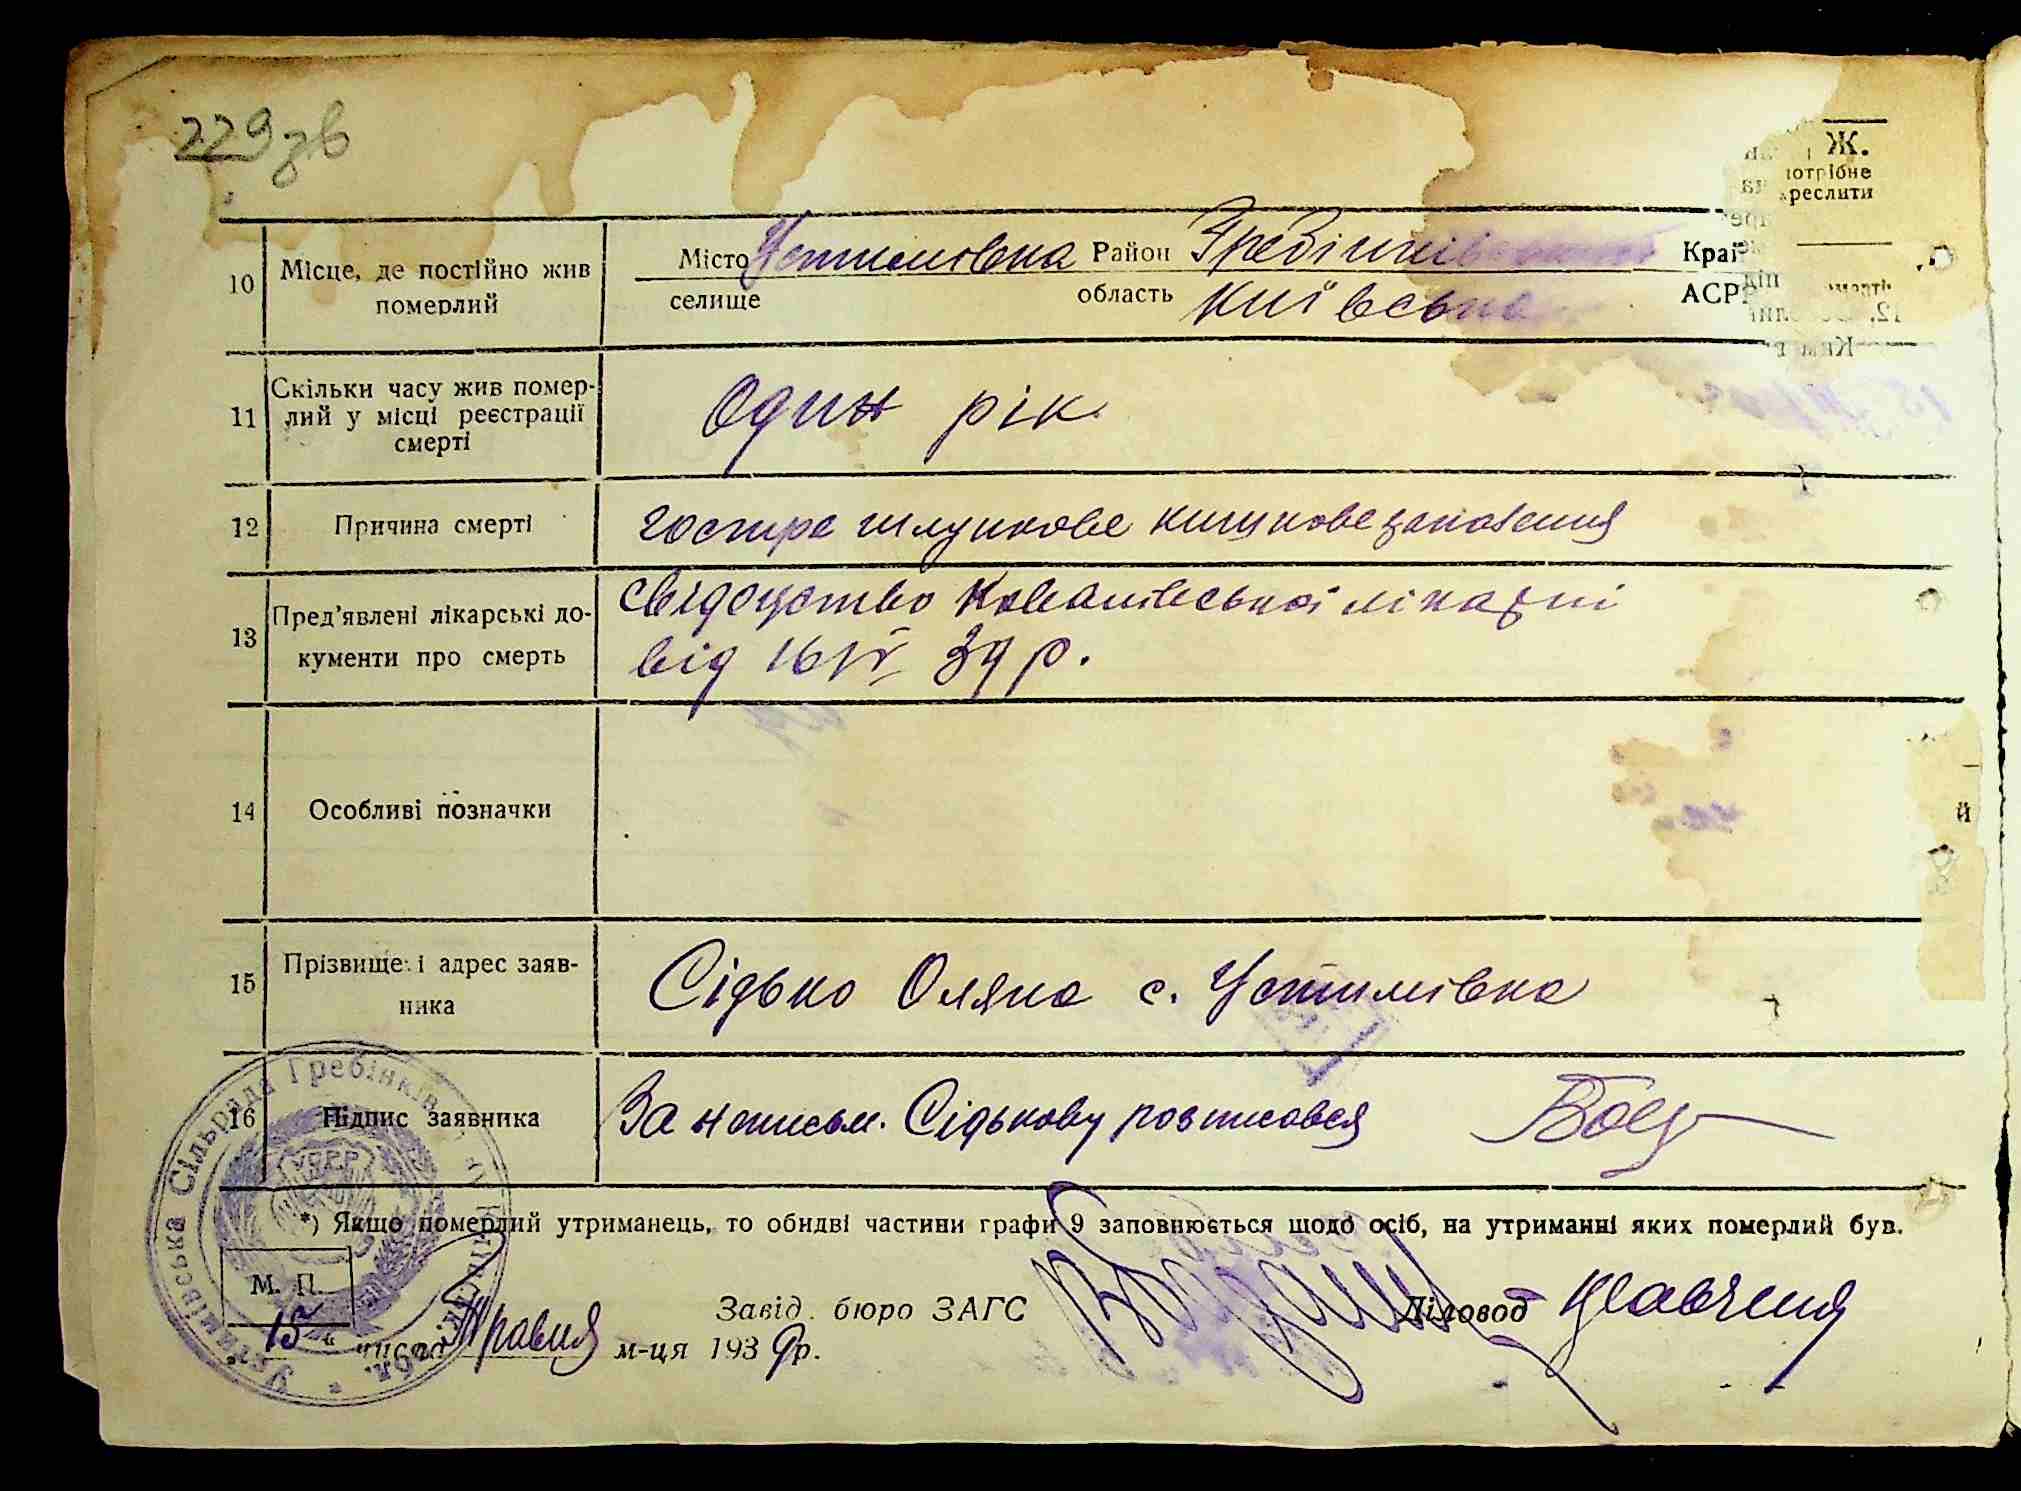 229 зв
Ж.
10 Місце, де постійно жив померлий
Місто Устимовка Район Гребінківський Край
селище область Київська АСР
11 Скільки часу жив помер-
лий у місці реєстрації
смерті
Один рік
12 Причина смерті
гостре шлункове кишкове запалення
13 Пред'явлені лікарські до-
кументи про смерть
свідоцтво Ковалівської лікарні
від 16 IV 39 р.
14 Особливі позначки
15 Прізвище і адрес заяв-
ника
Сідько Оляна с. Устимівка
16 Підпис заявника
За неписьм. Сідькову розписався
*) Якщо померлий утриманець, то обидві частини графи 9 заповнюється щодо осіб, на утриманні яких померлий був.
М. П.
Завід. бюро ЗАГС
Діловод
„15“ числа Травня м-ця 1939 р.
Устимівська Сільрада Гребінків
УСРР